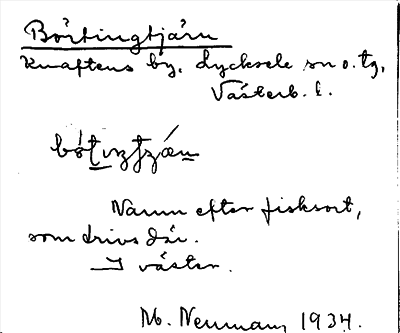 Börtingtjärn
Knaftens by, Lycksele sn o. tg,
Västerb. l.
Namn efter fisksort,
som trivs där.
I väster.
M. Neuman, 1934.